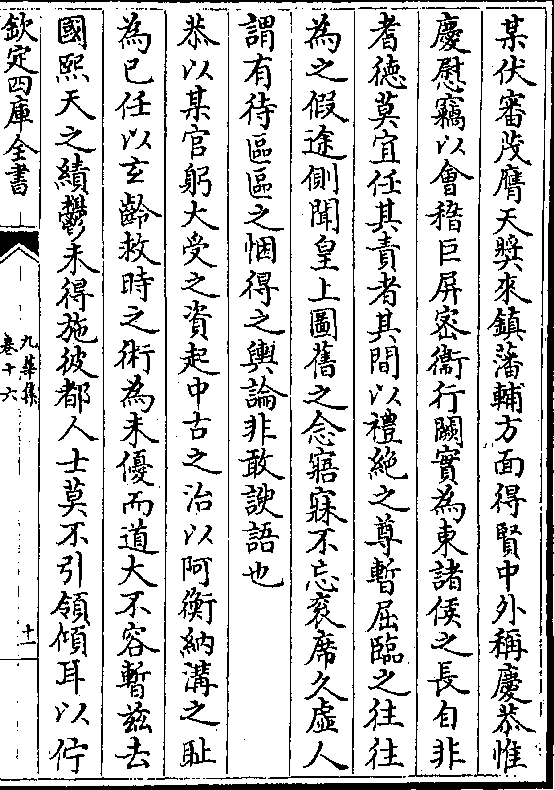 某伏審茂膺天奬來鎮藩輔方面得賢中外稱慶恭惟
慶慰竊以會稽巨屏密衞行闕實為東諸侯之長自非
耆德莫宜任其責者其間以禮絶之尊暫屈臨之往往
為之假途側聞皇上圖舊之念寤寐不忘衮席久虚人
謂有待區區之悃得之輿論非敢諛語也
恭以某官躬大受之資起中古之治以阿衡納溝之耻
為已任以玄齡救時之術為未優而道大不容暫兹去
國熙天之績鬱未得施彼都人士莫不引領傾耳以佇
欽定四庫全書
九華集
卷十六
十一